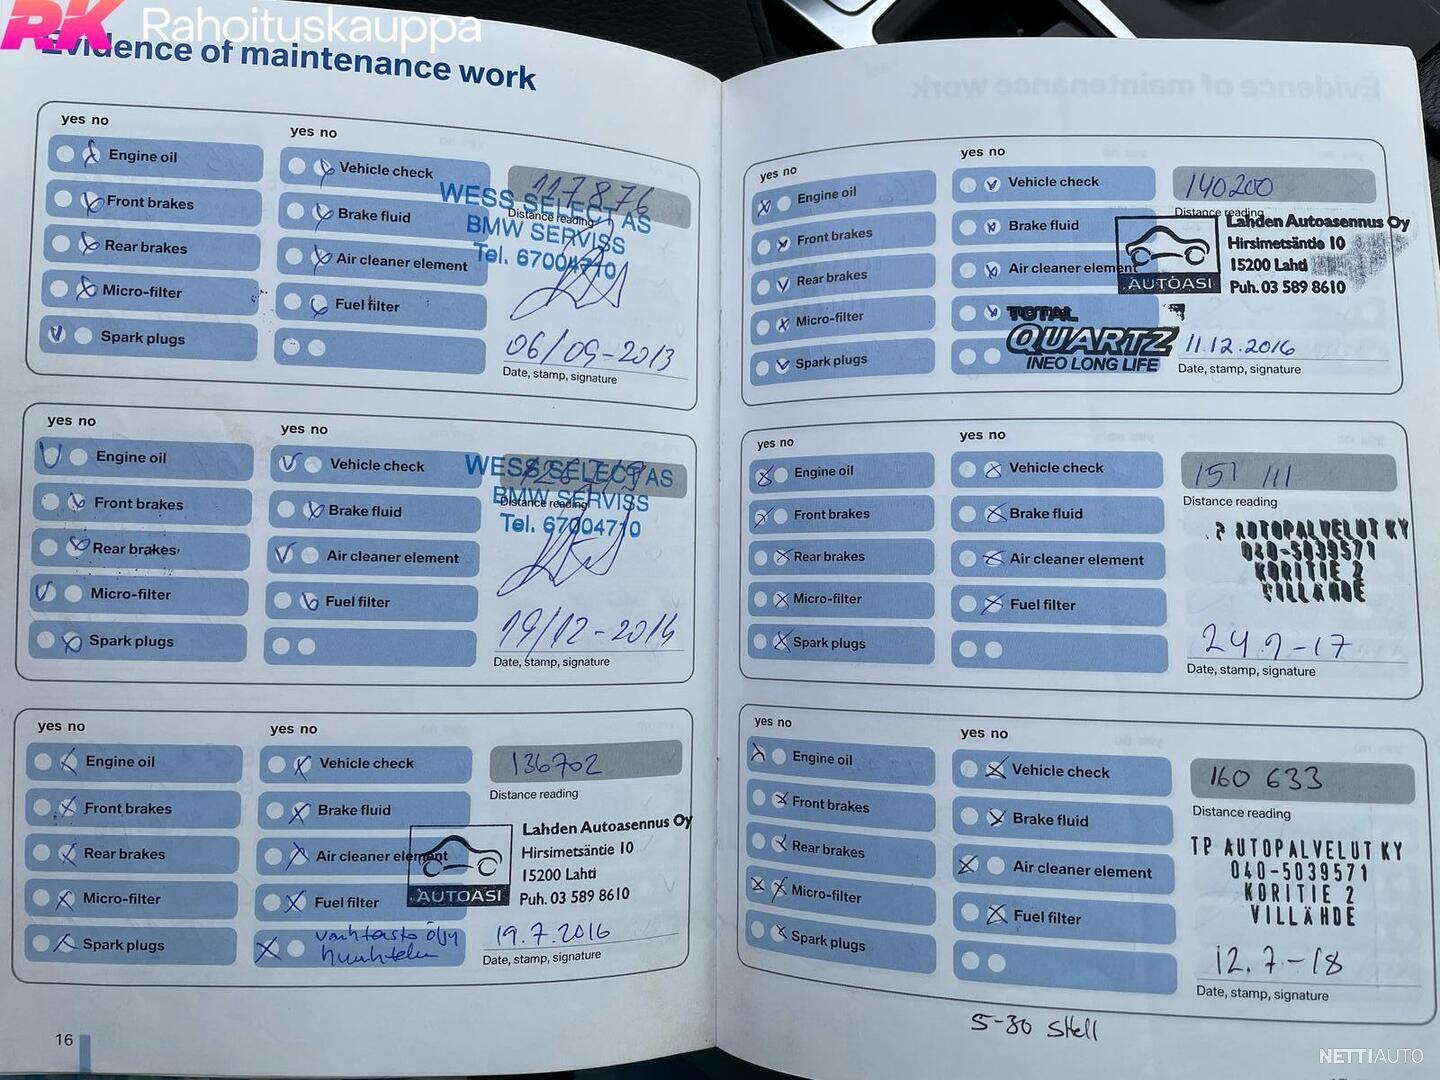 RK Rahoituskauppa
Evidence of maintenance work
yes no
Engine oil
Front brakes
Rear brakes
Micro-filter
Spark plugs
yes no
Vehicle check
Brake fluid
Air cleaner element
Fuel filter
117876
Distance reading
WESS SELECT AS
BMW SERVISS
Tel. 67004710
06/09-2013
Date, stamp, signature
yes no
Engine oil
Front brakes
Rear brakes
Micro-filter
Spark plugs
yes no
Vehicle check
Brake fluid
Air cleaner element
Fuel filter
Distance reading
WESS SELECT AS
BMW SERVISS
Tel. 67004710
19/12-2014
Date, stamp, signature
yes no
Engine oil
Front brakes
Rear brakes
Micro-filter
Spark plugs
yes no
Vehicle check
Brake fluid
Air cleaner element
Fuel filter
vaihteisto öljy
huuhtelu
136702
Distance reading
AUTOASI
Lahden Autoasennus Oy
Hirsimetsäntie 10
15200 Lahti
Puh. 03 589 8610
19.7.2016
Date, stamp, signature
16
yes no
Engine oil
Front brakes
Rear brakes
Micro-filter
Spark plugs
yes no
Vehicle check
Brake fluid
Air cleaner element
Fuel filter
140200
Distance reading
AUTOASI
Lahden Autoasennus Oy
Hirsimetsäntie 10
15200 Lahti
Puh. 03 589 8610
TOTAL
QUARTZ
INEO LONG LIFE
11.12.2016
Date, stamp, signature
yes no
Engine oil
Front brakes
Rear brakes
Micro-filter
Spark plugs
yes no
Vehicle check
Brake fluid
Air cleaner element
Fuel filter
151 111
Distance reading
P AUTOPALVELUT KY
040-5039571
KORITIE 2
VILLÄHDE
Date, stamp, signature
yes no
Engine oil
Front brakes
Rear brakes
Micro-filter
Spark plugs
yes no
Vehicle check
Brake fluid
Air cleaner element
Fuel filter
160 633
Distance reading
TP AUTOPALVELUT KY
040-5039571
KORITIE 2
VILLÄHDE
12.7.-18
Date, stamp, signature
5-30 Shell
NETTIAUTO